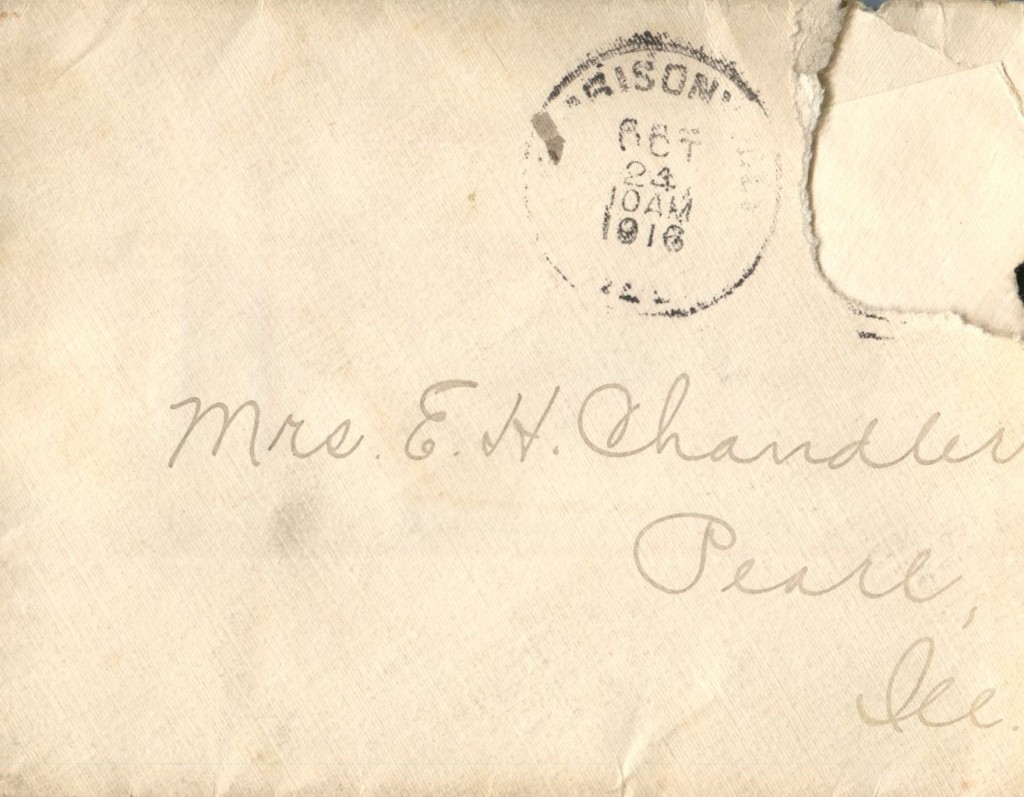 OCT
24
10AM
1916
Mrs. E. H. Chandler
Pearl,
Ill.